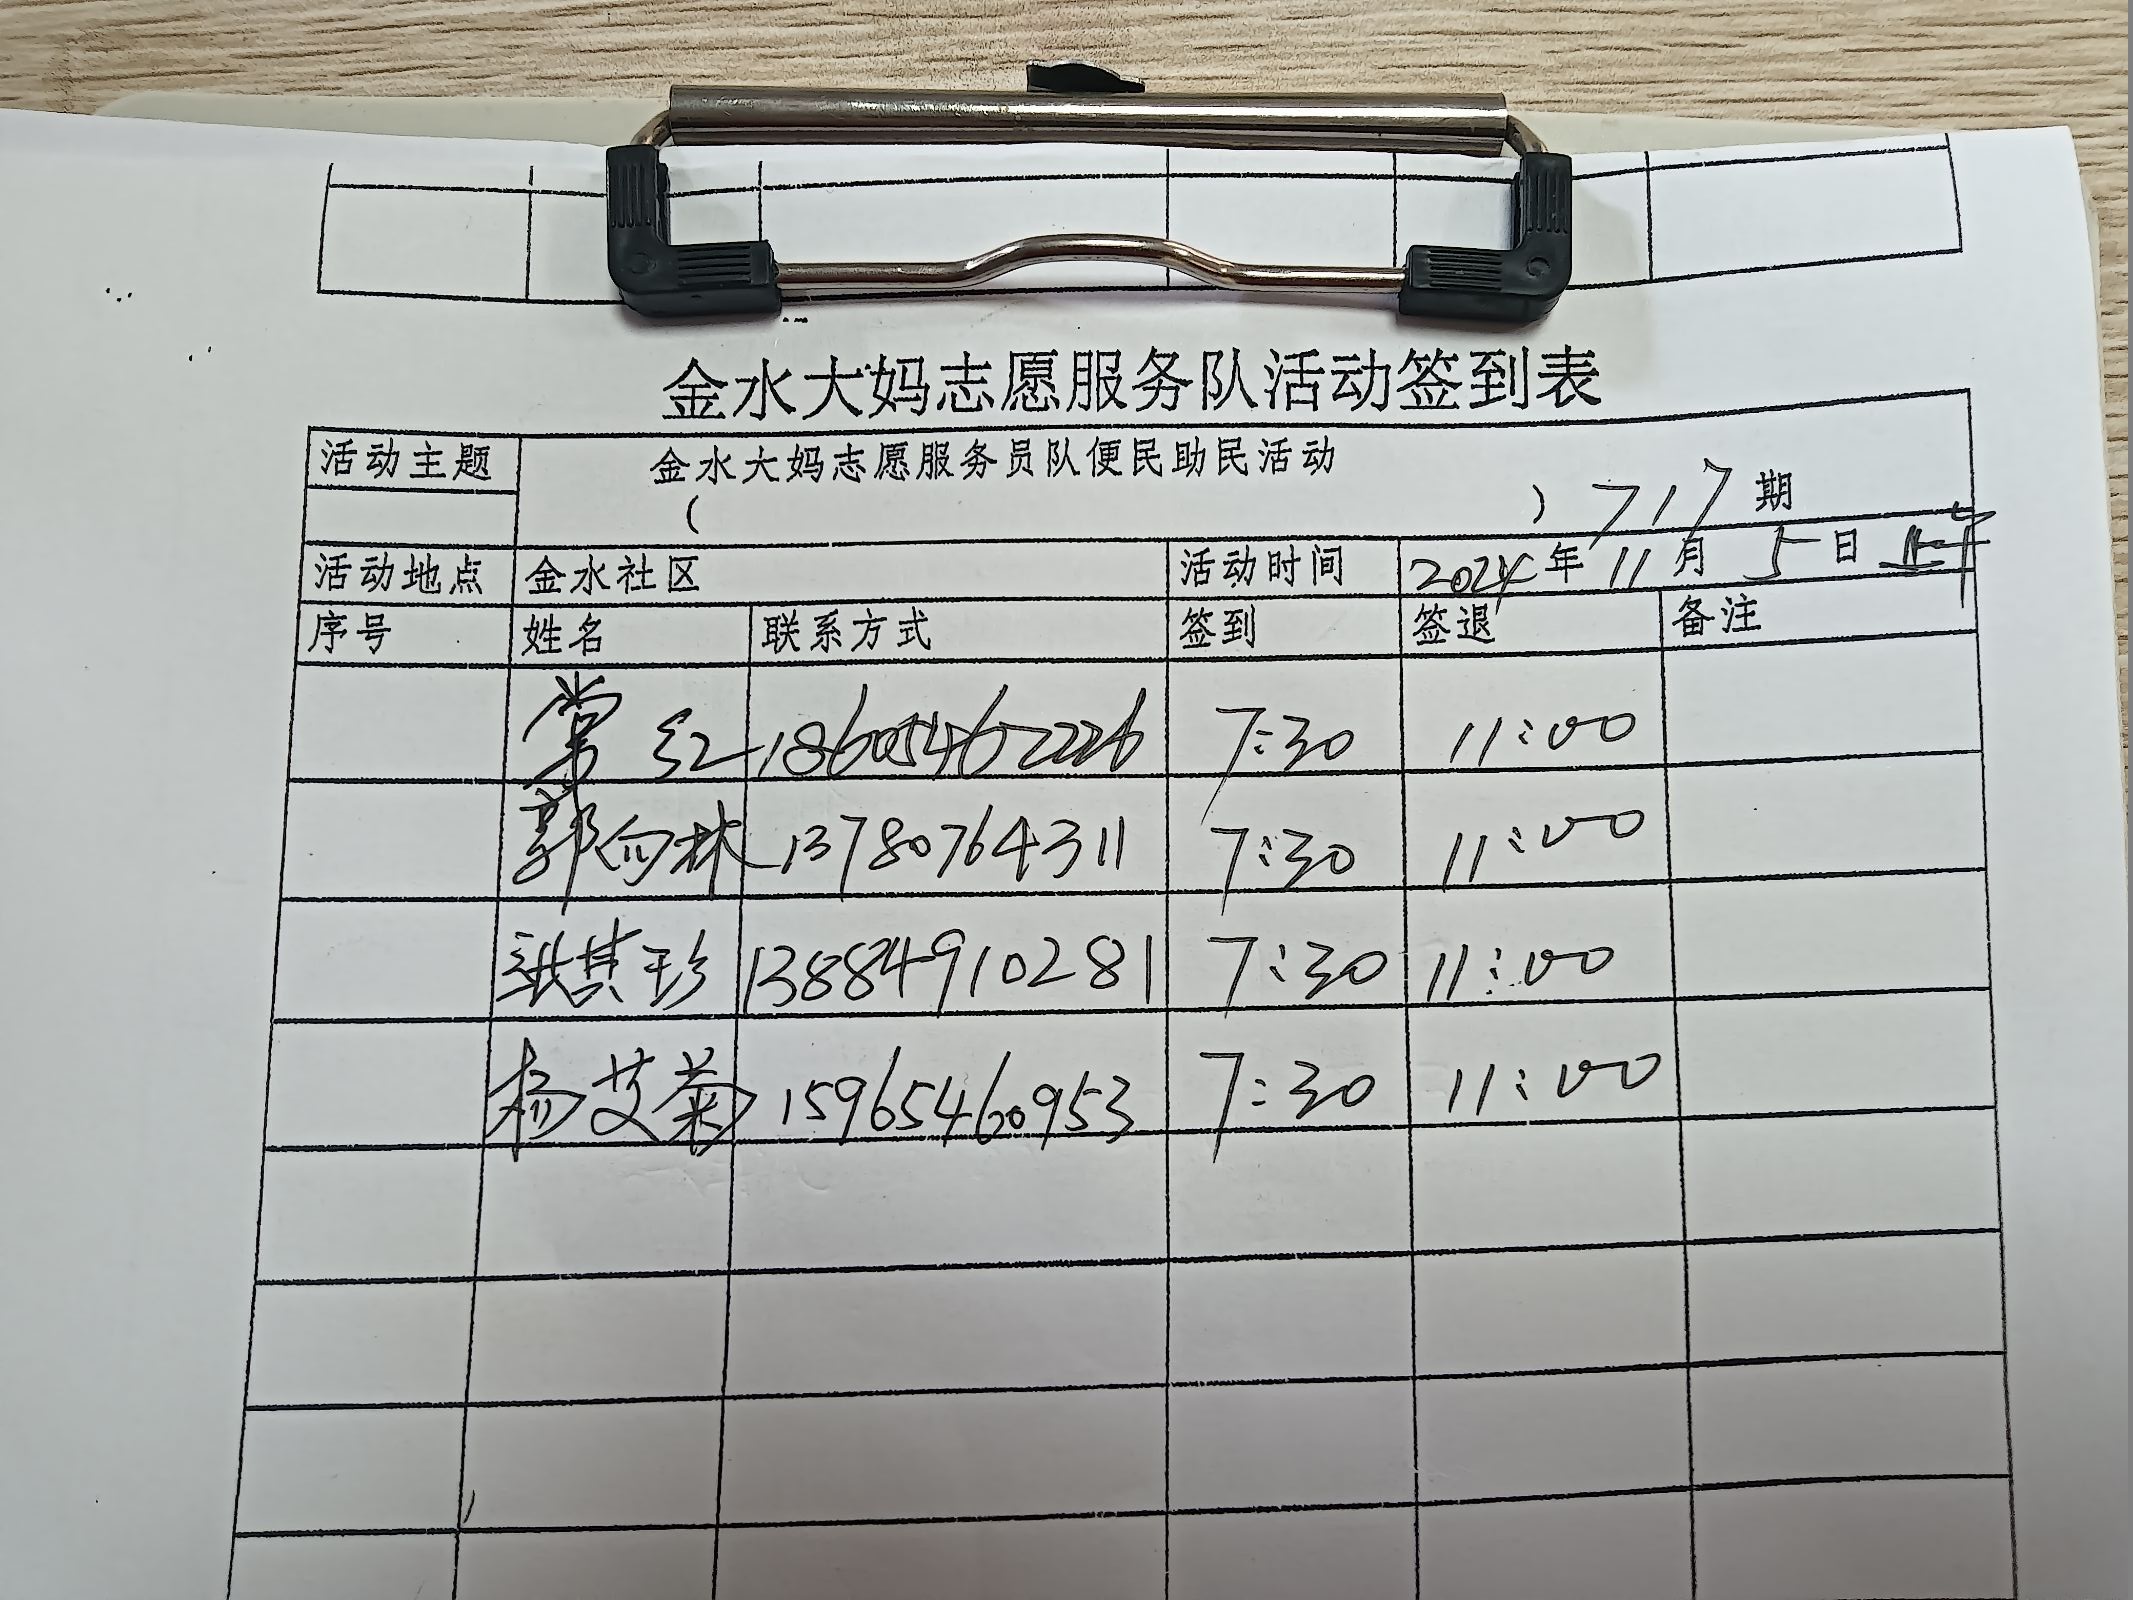 金水大妈志愿服务队活动签到表
活动主题 金水大妈志愿服务员队便民助民活动
( ) 717期
活动地点 金水社区 活动时间 2024年11月5日上午
序号 姓名 联系方式 签到 签退 备注
常红 18605462226 7:30 11:00
郭向林 13780764311 7:30 11:00
张其珍 13884910281 7:30 11:00
杨艾菊 15965460953 7:30 11:00